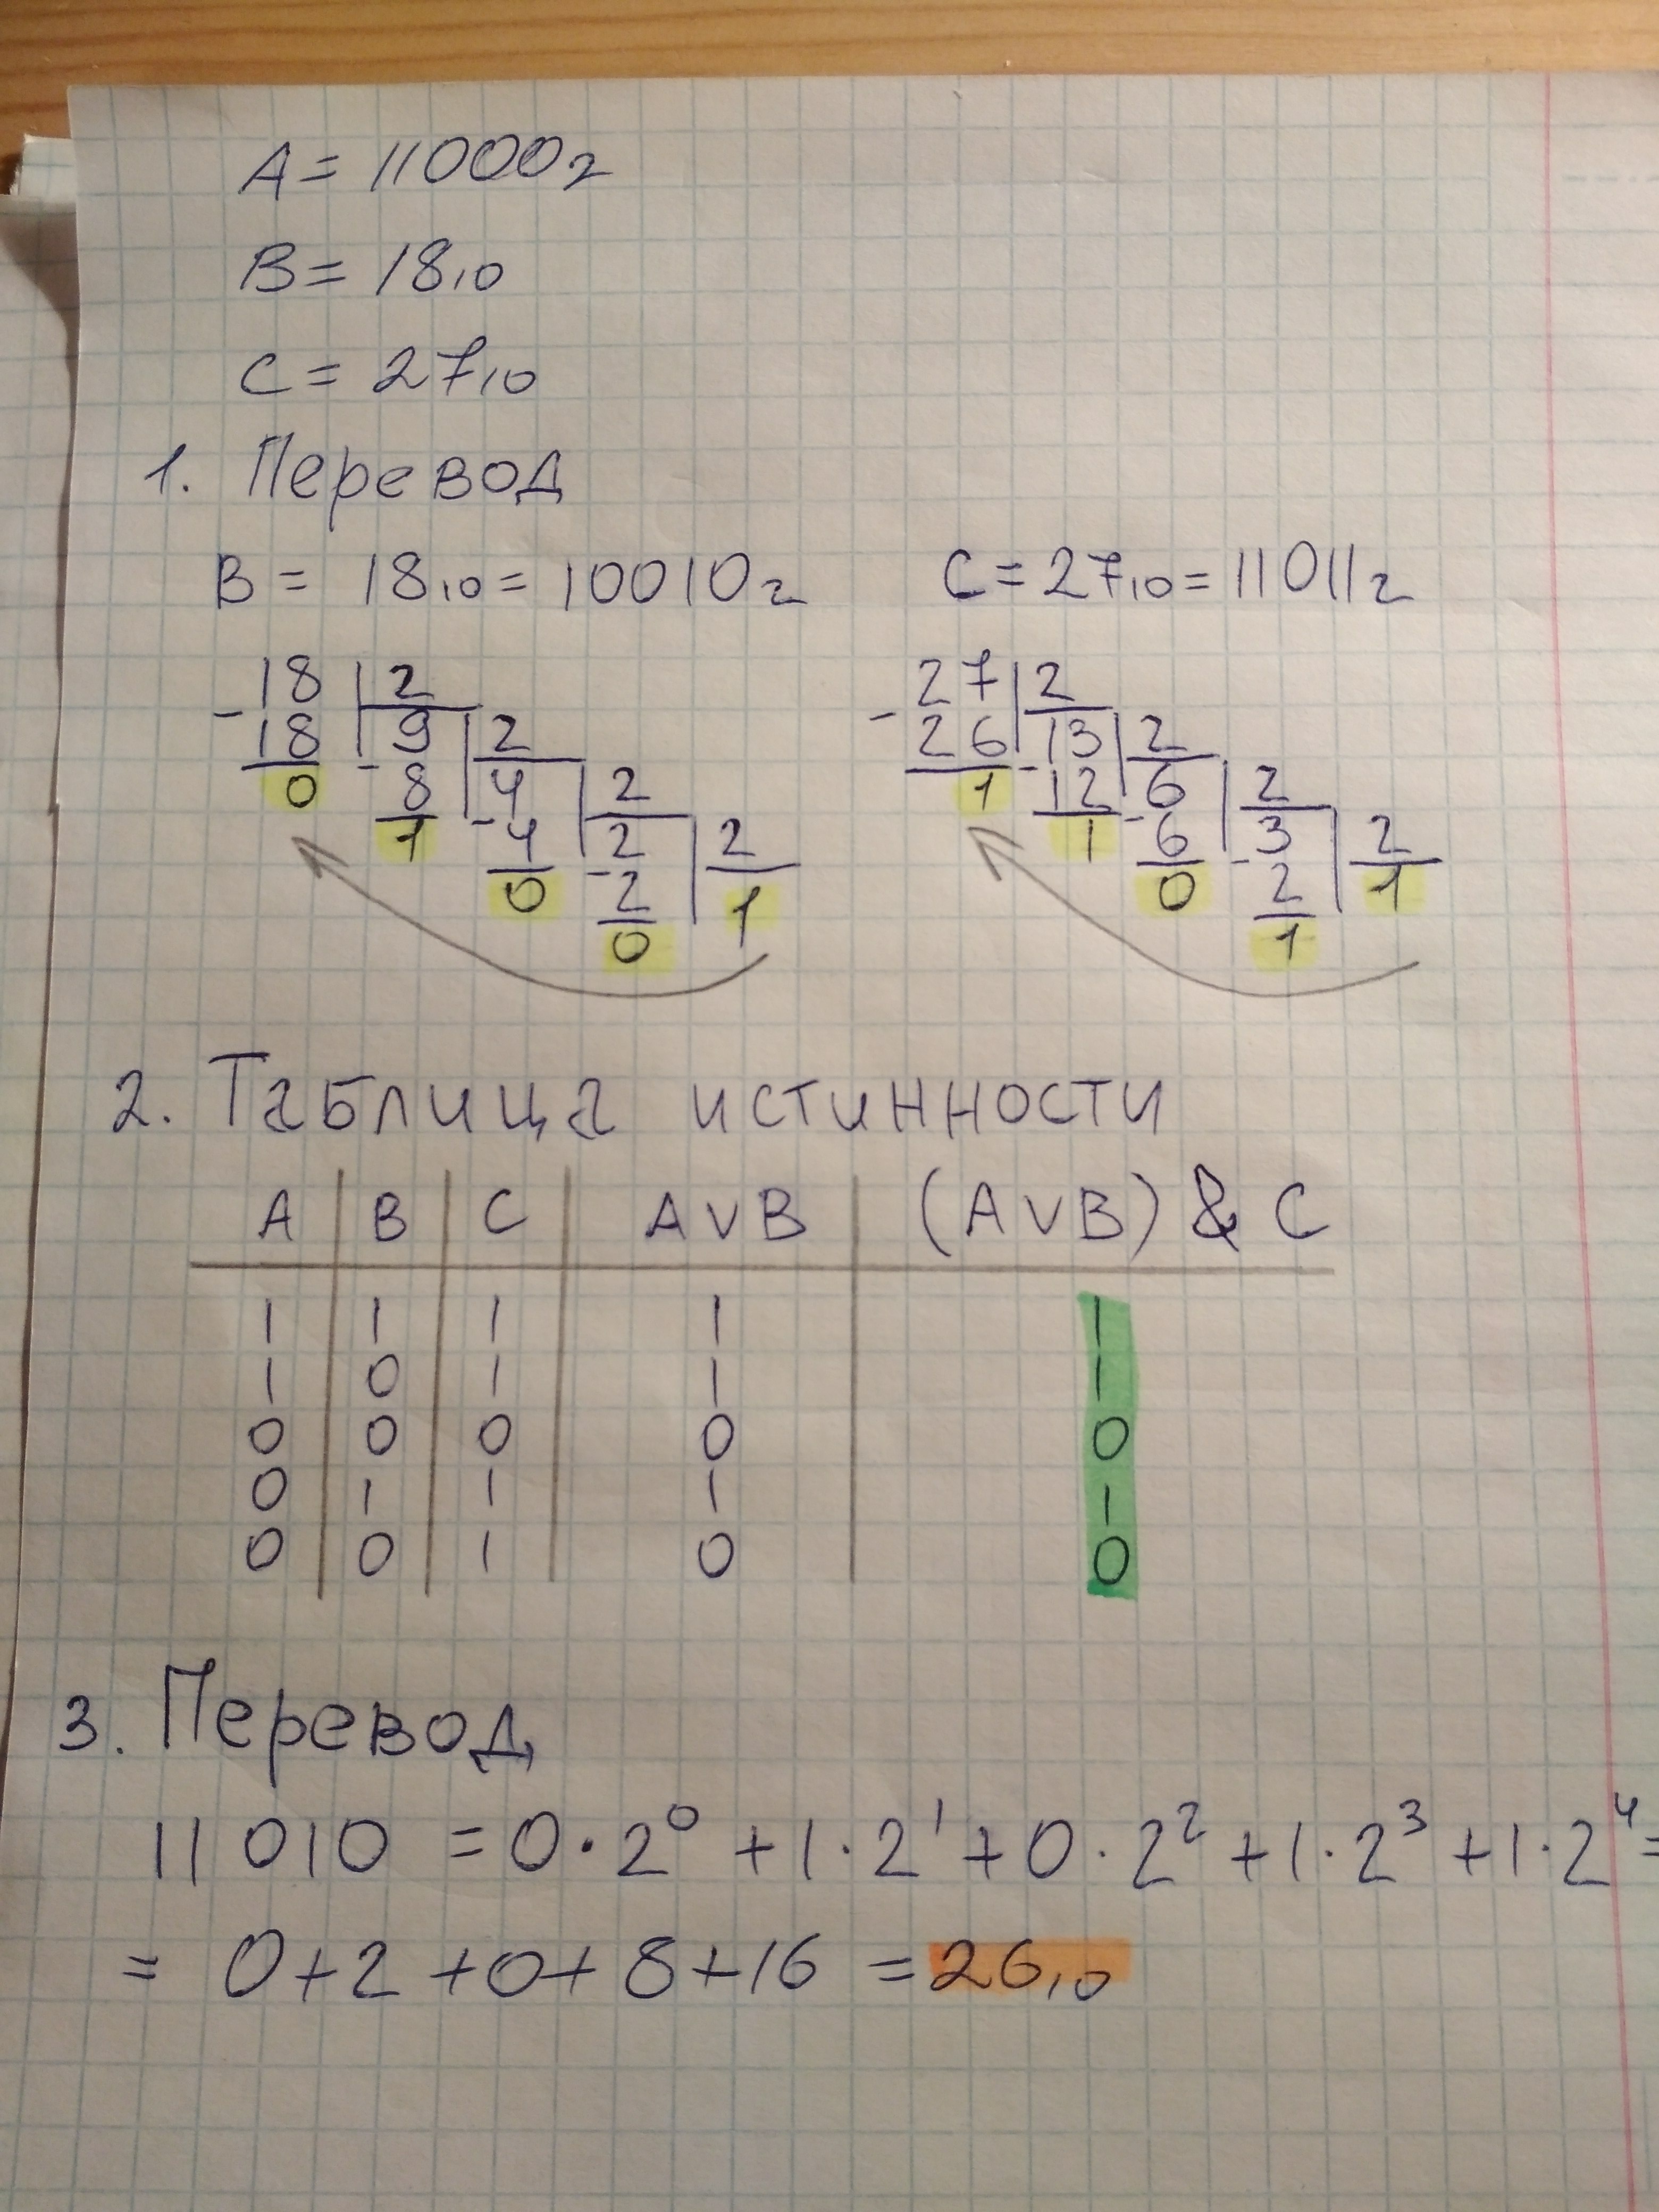 A = 11000₂
B = 18₁₀
C = 27₁₀
1. Перевод
B = 18₁₀ = 10010₂ C = 27₁₀ = 11011₂
18 2 27 2
- 18 9 2 - 26 13 2
0 - 8 4 2 1 - 12 6 2
1 - 4 2 2 1 - 6 3 2
0 - 2 1 0 - 2 1
0 1
2. Таблица истинности
A B C A ∨ B (A ∨ B) & C
1 1 1 1 1
1 0 1 1 1
0 0 0 0 0
0 1 1 1 1
0 0 1 0 0
3. Перевод
11010 = 0·2⁰ + 1·2¹ + 0·2² + 1·2³ + 1·2⁴ =
= 0 + 2 + 0 + 8 + 16 = 26₁₀